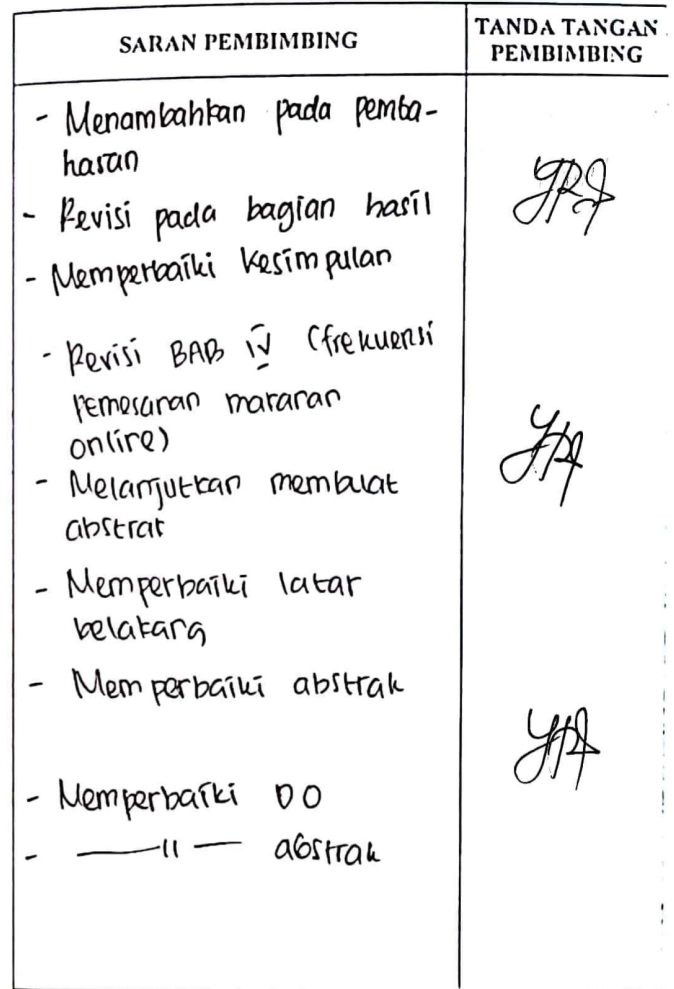 SARAN PEMBIMBING
TANDA TANGAN
PEMBIMBING
- Menambahkan pada pemba-
hasan
- Revisi pada bagian hasil
- Memperbaiki kesimpulan
- Revisi BAB IV (frekuensi
pemesanan makanan
online)
- Melanjutkan membuat
abstrak
- Memperbaiki latar
belakang
- Memperbaiki abstrak
- Memperbaiki DO
- —— 11 — abstrak